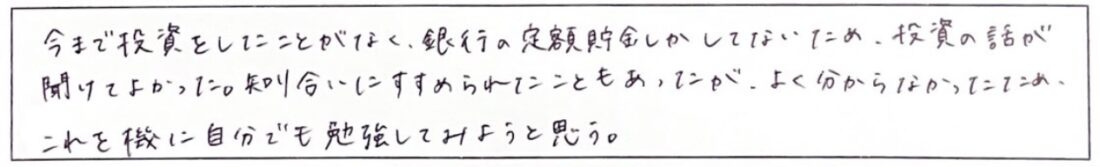 今まで投資をしたことがなく、銀行の定額貯金しかしてないため、投資の話が
聞けてよかった。知り合いにすすめられたこともあったが、よく分からなかったため、
これを機に自分でも勉強してみようと思う。